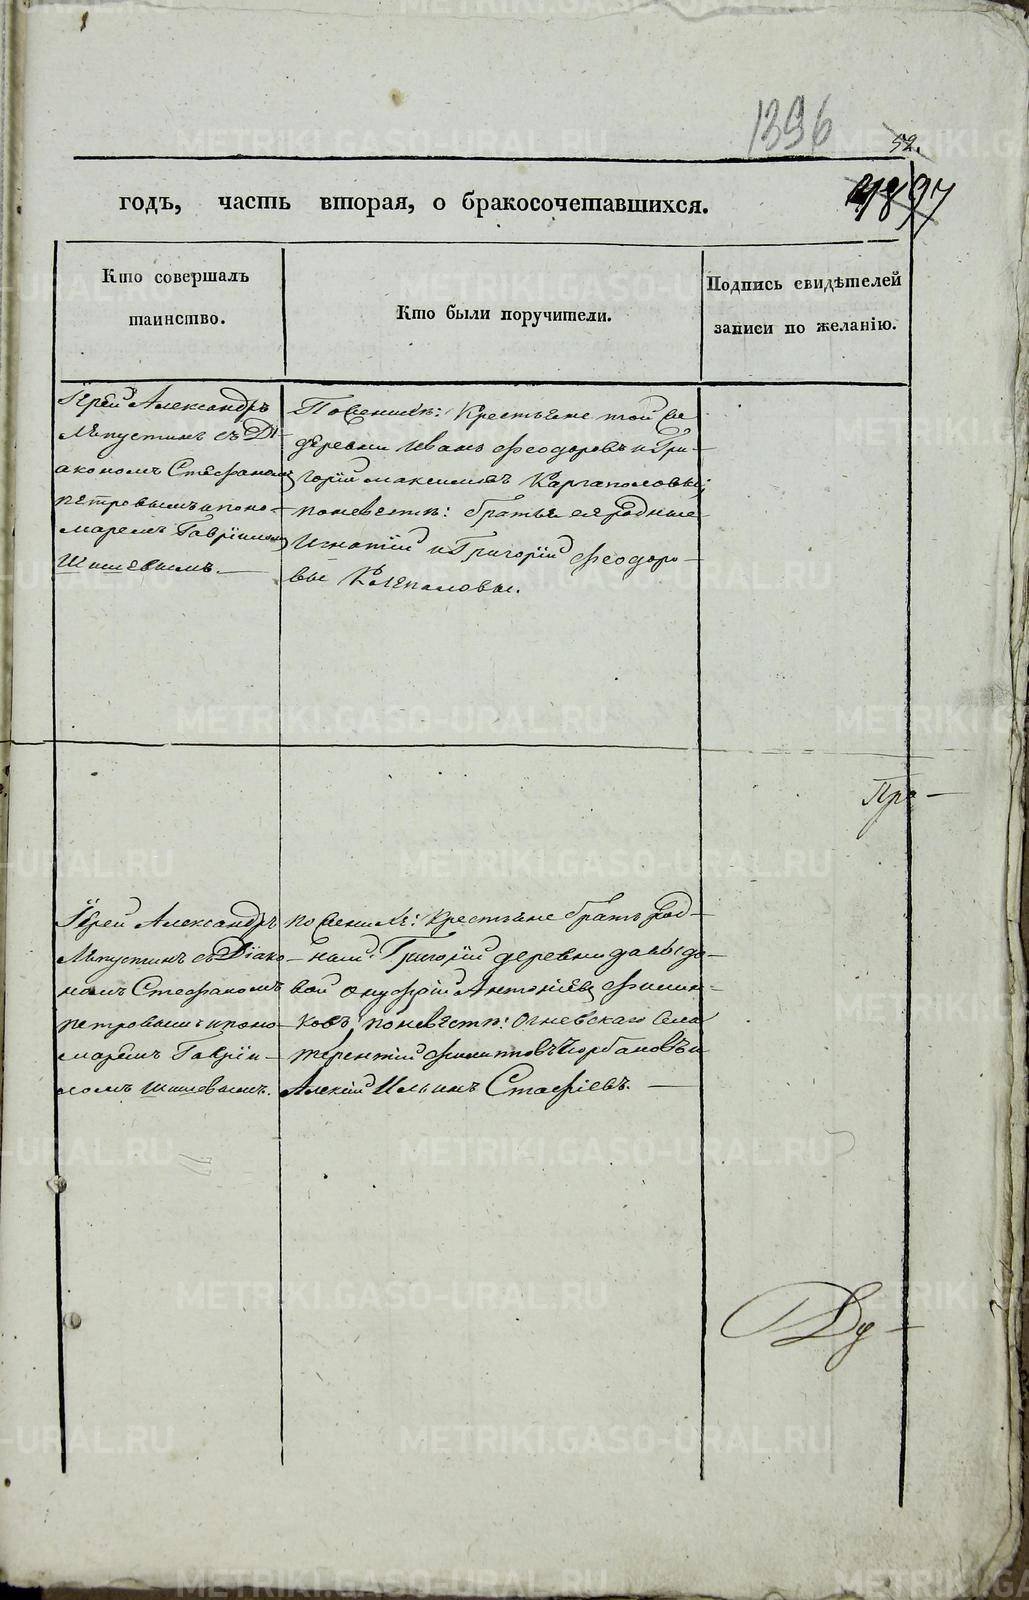 1396
52.
1897
годъ, часть вторая, о бракосочетавшихся.
Кто совершалъ
таинство.
Кто были поручители.
Подпись свидѣтелей
записи по желанію.
Іерей Александръ
Лѣпустинъ съ Ді-
акономъ Стефаномъ
петровымъ и поно-
маремъ Гавріиломъ
Шишевымъ.
По женихѣ: Крестьяне той же
деревни Иванъ Феодоровъ и Гри-
горій Максимовъ Каргаполовы;
по невестѣ: братья ея родные
Игнатій и Григорій Феодоро-
вы Клепаловы.
Пра-
Іерей Александръ
Лѣпустинъ съ Діако-
номъ Стефаномъ
петровымъ и поно-
маремъ Гаврии-
ломъ Шишевымъ.
по женихѣ: крестьяне братъ род-
ный Григорій деревни давыдо-
вой Онуфрій Антоніевъ Филин-
ковъ; по невестѣ: Огневскаго села
терентій Филипповъ Горбановъ и
Алексій Ильинъ Стафіевъ.
Ду-
METRIKI.GASO-URAL.RU